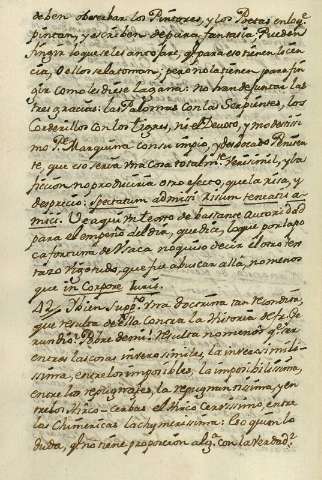 deben observar los Pintores, y los Poetas en lo q.e
pintan, y escriben de pura fantasia. Pueden
fingir lo que se les antojare, q.e para eso tienen licen
cia, o ellos se la toman; pero no la tienen para fin
gir como les diese la gana: no han de juntar las
tres gracias: las Palomas con las Serpientes, los
Corderillos con los Tigres, ni el Devoto, y modestisimo
Marquina con su impio, y desdorado
que eso seria una cosa totalm.te Verisimil, y la
ficcion no produciria otro efecto, que la risa, y
desprecio: Spectatum admissi risum teneatis a
mici. Ve aqui un texto de bastante autoridad
para el empeño del dia, que dia, lo que por la po
ca fortuna de Vraca no quiso decir el otro tex
tazo Vigotudo, que fui a buscar alla, no menos
que in Corpore Iuris.
42. Y bien Supp.to Una doctrina tan redonda,
que resulta de ella contra la Historia de fr. Ge
rundio? Pobre de mi! resulta no menos q.e ser
entre las cosas inverosimiles, la inverosimili
sima, entre los imposibles, la imposibilisima,
entre los repugnantes, la repugnantisima, y en
tre los Hirco-cerbos el Hirco Cerbisimo, entre
las Chimericas la chymerisima: Eso quien lo
duda, q.e no tiene proporcion alg.a con la verdad?